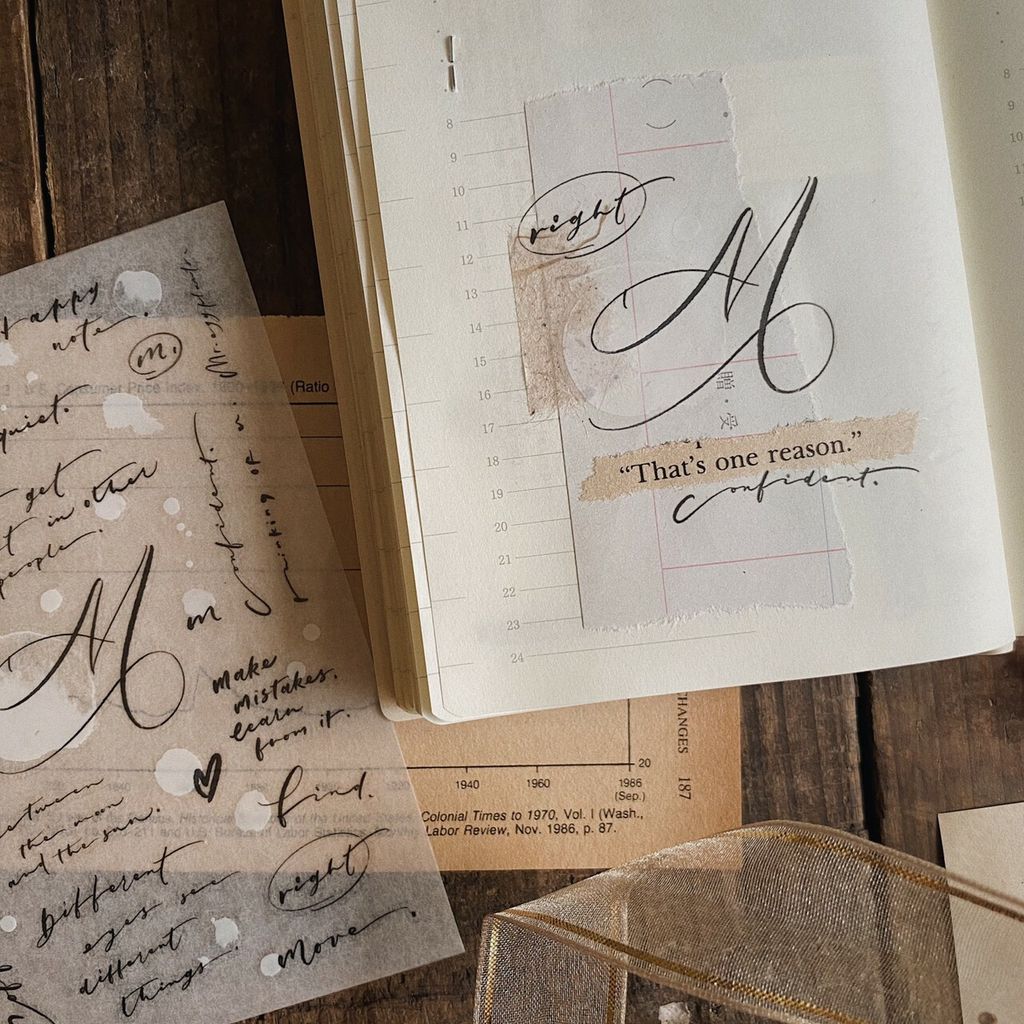 Happy
note.
m.
quiet.
get
in other
people.
M
m
confident.
thinking of m.
make
mistakes.
learn
from it.
find.
between
the moon
and the sun.
Different
eyes see
different
things.
right
move.
Consumer Price Index,
(Ratio
1940
1920
1940
1960
1986
(Sep.)
20
Colonial Times to 1970, Vol. I (Wash.,
Labor Review, Nov. 1986, p. 87.
HANGES 187
8
9
10
11
12
13
14
15
16
17
18
19
20
21
22
23
24
right
M
贈・受
“That’s one reason.”
confident.
8
9
10